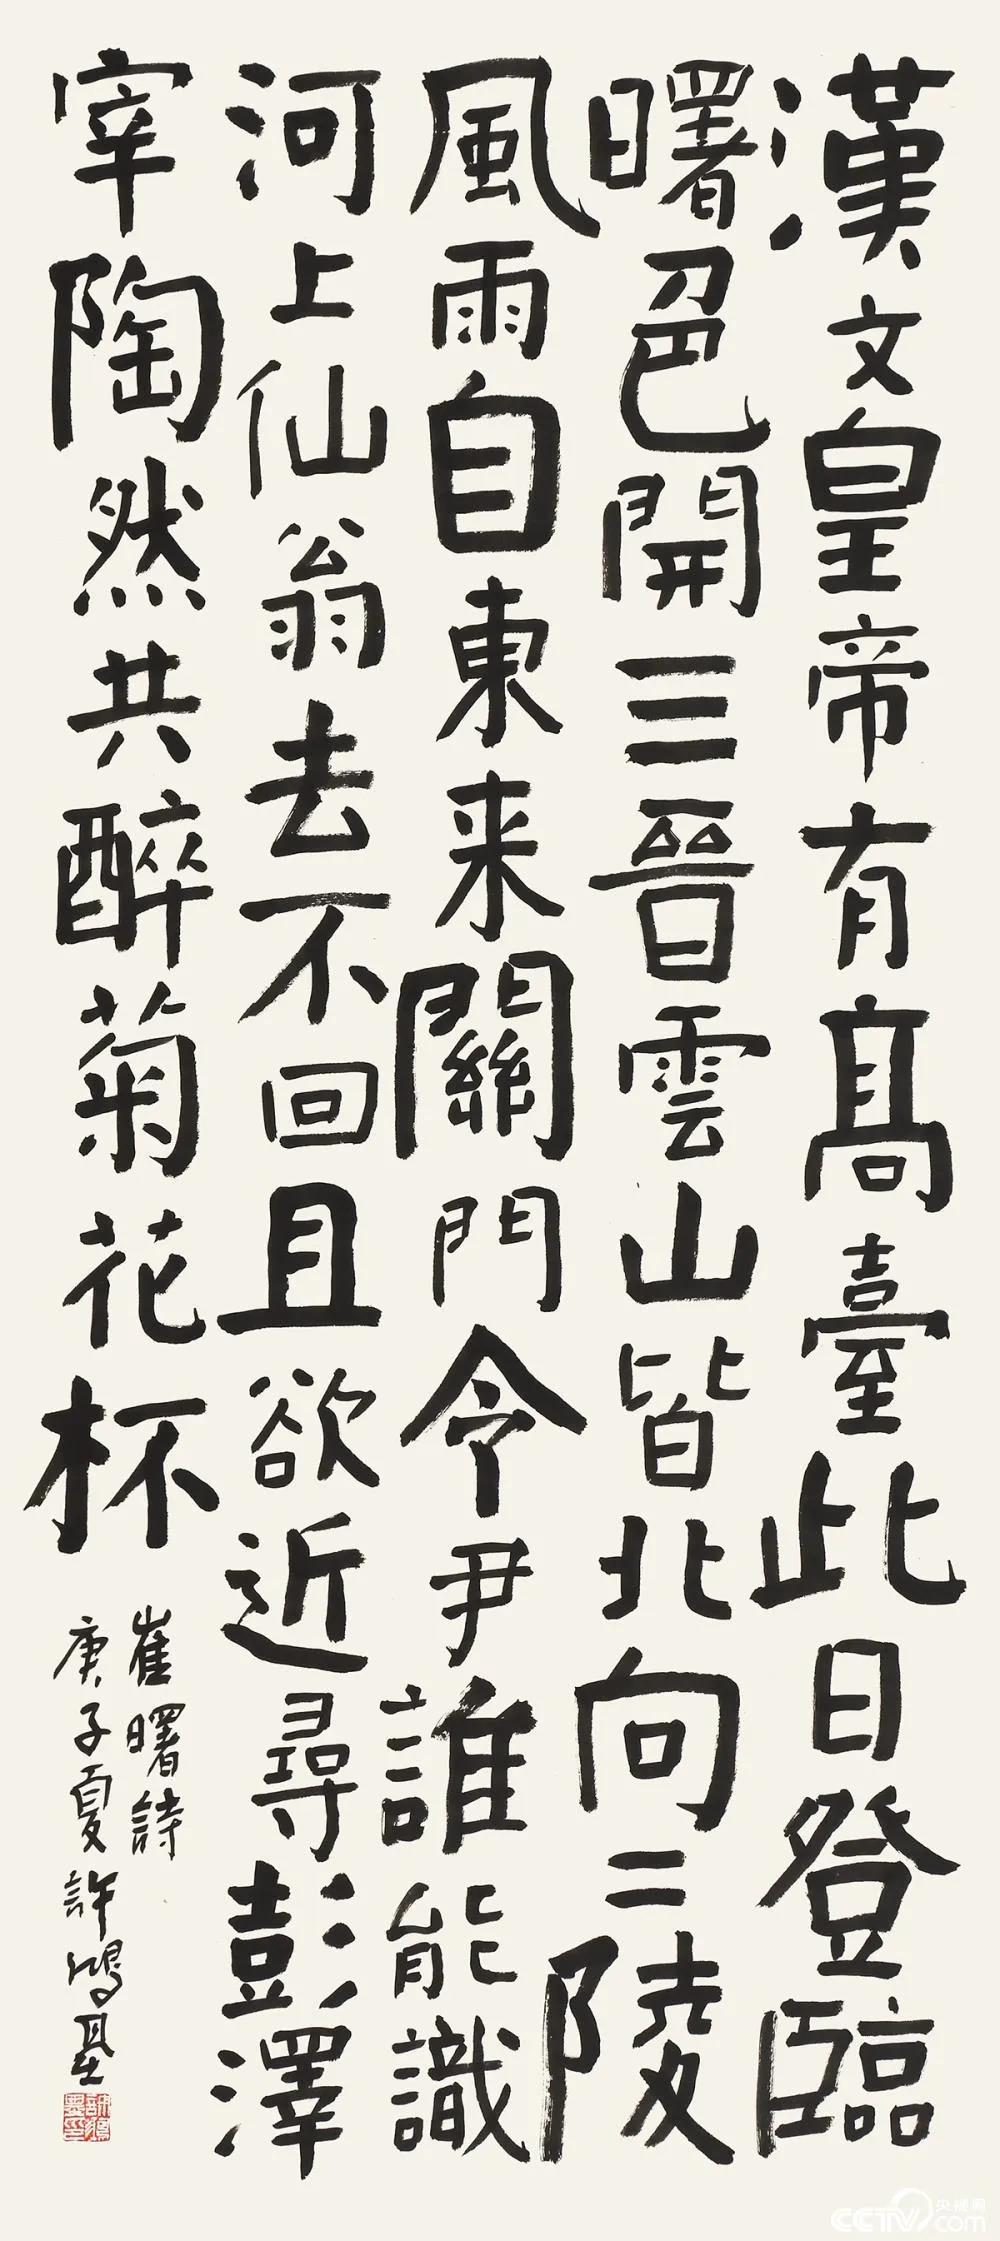 漢文皇帝有髙臺此日登臨
曙色開三晉雲山皆北向二陵
風雨自東来關門令尹誰能識
河上仙翁去不回且欲近尋彭澤
宰陶然共醉菊花杯
崔曙詩
庚子夏許鴻基
央视网
CCTV.com